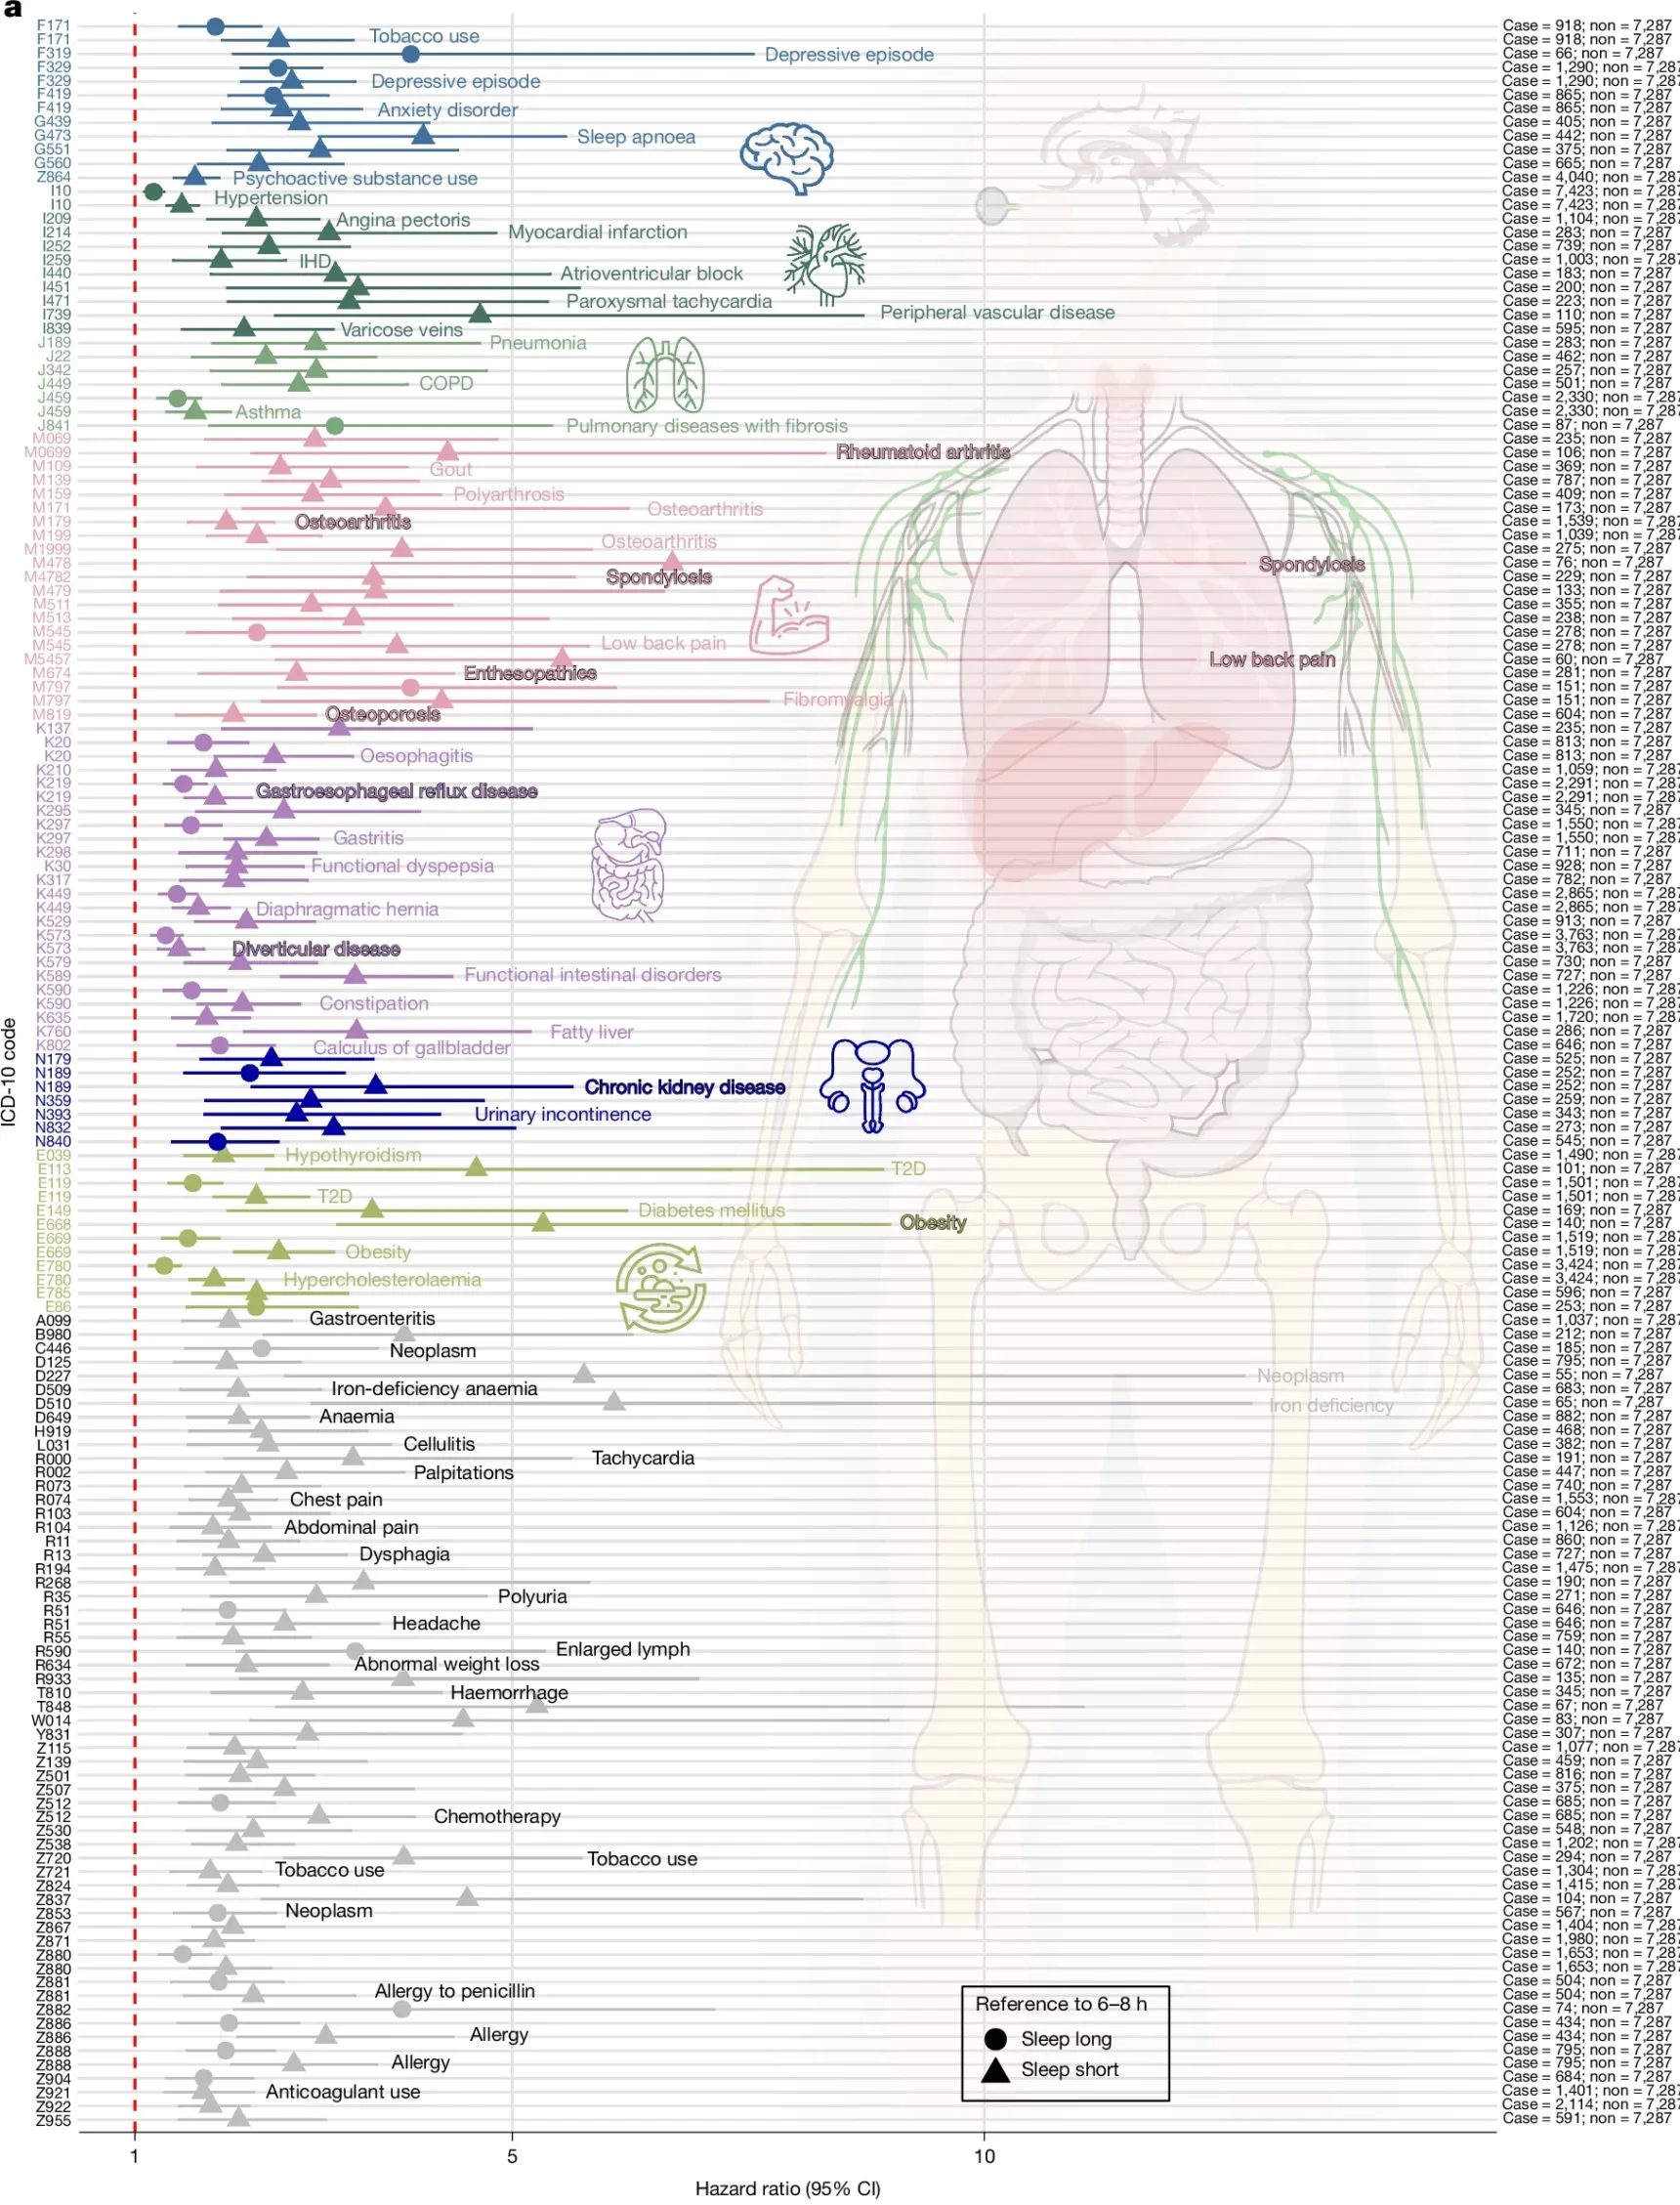 a
F171 Case = 918; non = 7,287
F171 Tobacco use Case = 918; non = 7,287
F319 Depressive episode Case = 66; non = 7,287
F329 Case = 1,290; non = 7,287
F329 Depressive episode Case = 1,290; non = 7,287
F419 Case = 865; non = 7,287
F419 Anxiety disorder Case = 865; non = 7,287
G439 Case = 405; non = 7,287
G473 Sleep apnoea Case = 442; non = 7,287
G551 Case = 375; non = 7,287
G560 Case = 665; non = 7,287
Z864 Psychoactive substance use Case = 4,040; non = 7,287
I10 Case = 7,423; non = 7,287
I10 Hypertension Case = 7,423; non = 7,287
I209 Angina pectoris Case = 1,104; non = 7,287
I214 Myocardial infarction Case = 283; non = 7,287
I252 Case = 739; non = 7,287
I259 IHD Case = 1,003; non = 7,287
I440 Atrioventricular block Case = 183; non = 7,287
I451 Case = 200; non = 7,287
I471 Paroxysmal tachycardia Case = 223; non = 7,287
I739 Peripheral vascular disease Case = 110; non = 7,287
I839 Varicose veins Case = 595; non = 7,287
J189 Pneumonia Case = 283; non = 7,287
J22 Case = 462; non = 7,287
J342 Case = 257; non = 7,287
J449 COPD Case = 501; non = 7,287
J459 Case = 2,330; non = 7,287
J459 Asthma Case = 2,330; non = 7,287
J841 Pulmonary diseases with fibrosis Case = 87; non = 7,287
M069 Case = 235; non = 7,287
M0699 Rheumatoid arthritis Case = 106; non = 7,287
M109 Gout Case = 369; non = 7,287
M139 Case = 787; non = 7,287
M159 Polyarthrosis Case = 409; non = 7,287
M171 Osteoarthritis Case = 173; non = 7,287
M179 Osteoarthritis Case = 1,539; non = 7,287
M199 Case = 1,039; non = 7,287
M1999 Osteoarthritis Case = 275; non = 7,287
M478 Spondylosis Case = 76; non = 7,287
M4782 Spondylosis Case = 229; non = 7,287
M479 Case = 133; non = 7,287
M511 Case = 355; non = 7,287
M513 Case = 238; non = 7,287
M545 Case = 278; non = 7,287
M545 Low back pain Case = 278; non = 7,287
M5457 Low back pain Case = 60; non = 7,287
M674 Enthesopathies Case = 281; non = 7,287
M797 Case = 151; non = 7,287
M797 Fibromyalgia Case = 151; non = 7,287
M819 Osteoporosis Case = 604; non = 7,287
K137 Case = 235; non = 7,287
K20 Case = 813; non = 7,287
K20 Oesophagitis Case = 813; non = 7,287
K210 Case = 1,059; non = 7,287
K219 Case = 2,291; non = 7,287
K219 Gastroesophageal reflux disease Case = 2,291; non = 7,287
K295 Case = 345; non = 7,287
K297 Case = 1,550; non = 7,287
K297 Gastritis Case = 1,550; non = 7,287
K298 Case = 711; non = 7,287
K30 Functional dyspepsia Case = 928; non = 7,287
K317 Case = 782; non = 7,287
K449 Case = 2,865; non = 7,287
K449 Diaphragmatic hernia Case = 2,865; non = 7,287
K529 Case = 913; non = 7,287
K573 Case = 3,763; non = 7,287
K573 Diverticular disease Case = 3,763; non = 7,287
K579 Case = 730; non = 7,287
K589 Functional intestinal disorders Case = 727; non = 7,287
K590 Case = 1,226; non = 7,287
K590 Constipation Case = 1,226; non = 7,287
K635 Case = 1,720; non = 7,287
K760 Fatty liver Case = 286; non = 7,287
K802 Calculus of gallbladder Case = 646; non = 7,287
N179 Case = 525; non = 7,287
N189 Case = 252; non = 7,287
N189 Chronic kidney disease Case = 252; non = 7,287
N359 Case = 259; non = 7,287
N393 Urinary incontinence Case = 343; non = 7,287
N832 Case = 273; non = 7,287
N840 Case = 545; non = 7,287
E039 Hypothyroidism Case = 1,490; non = 7,287
E113 T2D Case = 101; non = 7,287
E119 Case = 1,501; non = 7,287
E119 T2D Case = 1,501; non = 7,287
E149 Diabetes mellitus Case = 169; non = 7,287
E668 Obesity Case = 140; non = 7,287
E669 Case = 1,519; non = 7,287
E669 Obesity Case = 1,519; non = 7,287
E780 Case = 3,424; non = 7,287
E780 Hypercholesterolaemia Case = 3,424; non = 7,287
E785 Case = 596; non = 7,287
E86 Case = 253; non = 7,287
A099 Gastroenteritis Case = 1,037; non = 7,287
B980 Case = 212; non = 7,287
C446 Neoplasm Case = 185; non = 7,287
D125 Case = 795; non = 7,287
D227 Neoplasm Case = 55; non = 7,287
D509 Iron-deficiency anaemia Case = 683; non = 7,287
D510 Iron deficiency Case = 65; non = 7,287
D649 Anaemia Case = 882; non = 7,287
H919 Case = 468; non = 7,287
L031 Cellulitis Case = 382; non = 7,287
R000 Tachycardia Case = 191; non = 7,287
R002 Palpitations Case = 447; non = 7,287
R073 Case = 740; non = 7,287
R074 Chest pain Case = 1,553; non = 7,287
R103 Case = 604; non = 7,287
R104 Abdominal pain Case = 1,126; non = 7,287
R11 Case = 860; non = 7,287
R13 Dysphagia Case = 727; non = 7,287
R194 Case = 1,475; non = 7,287
R268 Case = 190; non = 7,287
R35 Polyuria Case = 271; non = 7,287
R51 Case = 646; non = 7,287
R51 Headache Case = 646; non = 7,287
R55 Case = 759; non = 7,287
R590 Enlarged lymph Case = 140; non = 7,287
R634 Abnormal weight loss Case = 672; non = 7,287
R933 Case = 135; non = 7,287
T810 Haemorrhage Case = 345; non = 7,287
T848 Case = 67; non = 7,287
W014 Case = 83; non = 7,287
Y831 Case = 307; non = 7,287
Z115 Case = 1,077; non = 7,287
Z139 Case = 459; non = 7,287
Z501 Case = 816; non = 7,287
Z507 Case = 375; non = 7,287
Z512 Case = 685; non = 7,287
Z512 Chemotherapy Case = 685; non = 7,287
Z530 Case = 548; non = 7,287
Z538 Case = 1,202; non = 7,287
Z720 Tobacco use Case = 294; non = 7,287
Z721 Tobacco use Case = 1,304; non = 7,287
Z824 Case = 1,415; non = 7,287
Z837 Case = 104; non = 7,287
Z853 Neoplasm Case = 567; non = 7,287
Z867 Case = 1,404; non = 7,287
Z871 Case = 1,980; non = 7,287
Z880 Case = 1,653; non = 7,287
Z880 Case = 1,653; non = 7,287
Z881 Case = 504; non = 7,287
Z881 Allergy to penicillin Case = 504; non = 7,287
Z882 Case = 74; non = 7,287
Z886 Case = 434; non = 7,287
Z886 Allergy Case = 434; non = 7,287
Z888 Case = 795; non = 7,287
Z888 Allergy Case = 795; non = 7,287
Z904 Case = 684; non = 7,287
Z921 Anticoagulant use Case = 1,401; non = 7,287
Z922 Case = 2,114; non = 7,287
Z955 Case = 591; non = 7,287
Reference to 6–8 h
Sleep long
Sleep short
ICD-10 code
1 5 10
Hazard ratio (95% CI)